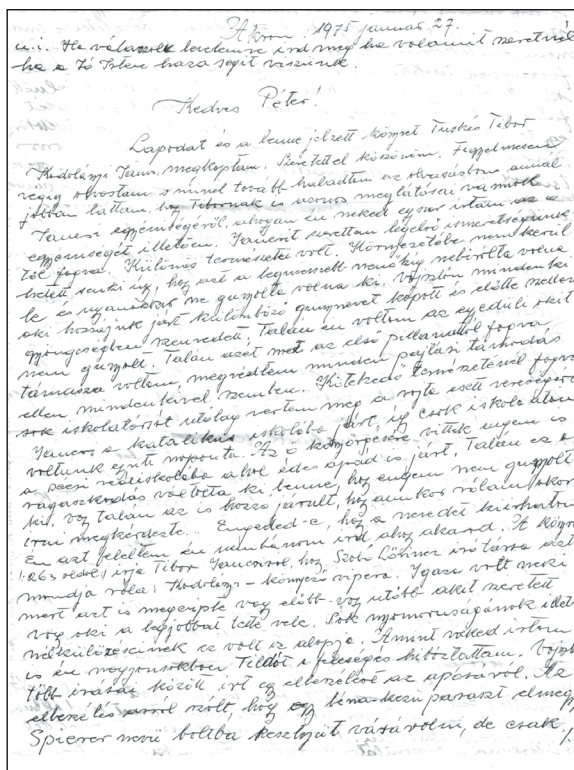 Akron. 1975 január 27.
u.i. Ha válaszolsz levelemre ird meg ha valamit szeretnél
ha a Jó Isten haza segit viszünk.
Kedves Péter!
Lapodat és a benne jelzett könyvet Tüskés Tibor
Kodolányi János, megkaptam. Szeretettel köszönöm. Figyelmesen
végig olvastam s minél tovább haladtam az olvasásban annál
jobban láttam, hogy Tibornak is azonos meglátásai vannak
Jancsi egyéniségéről, ahogyan én neked egyszer irtam az ő
egyéniségét illetően. Jancsit szerettem legelső ismeretségünk
től fogva. Különös természetü volt. Környezetébe nem kerül
hetett senki úgy, hogy azt a legmesszebb menőkig ne birálta volna
le és ugyanakkor ne gunyolta volna ki. Vajszlón mindenki
aki hozzájuk járt különböző gunynevet kapott és előtte szellemi
gyöngeségben szenvedett. Talán én voltam az egyedüli akit
nem gunyolt. Talán azért mert az első pillanattól fogva
támasza voltam, megvédtem minden pajtási támadás
ellen mindenkivel szemben. Kötekedő természeténél fogva
sok iskolatársát utólag vertem meg a rajta esett vereségért
Jancsi a katolikus iskolába járt, igy csak iskola után
voltunk együtt naponta. Az ő könyörgésére vittek engem is
a pécsi reáliskolába ahol édes apád is járt. Talán ez a
ragaszkodás váltotta ki benne, hogy engem nem gunyolt
ki, vagy talán az is hozzá járult, hogy amikor rólam akart
irni megkérdezte. Engeded-e, hogy a nevedet kiirhatom
Én azt feleltem én nem bánom ird ahogy akarod. A könyv
1.263 oldal) irja Tibor Jancsiról, hogy Szabó Lőrinc irótársa azt
mondja róla: Kodolányi - könnyező vipera. Igaza volt neki
mert azt is megcsipte vagy előbb-vagy utóbb akit szeretett
vagy aki a legjobbat tette vele. Sok nyomoruságának illetve
nélkülözésének ez volt az alapja. Amint néked irtam
is én nagyon sokban Teldát a feleségét hibáztattam. Vajszlói
több irásai között irt egy elbeszélést az apósáról. Az
elbeszélés arról szólt, hogy egy béna-kezü paraszt elmegy
Spierer nevü boltba kesztyüt vásárolni, de csak